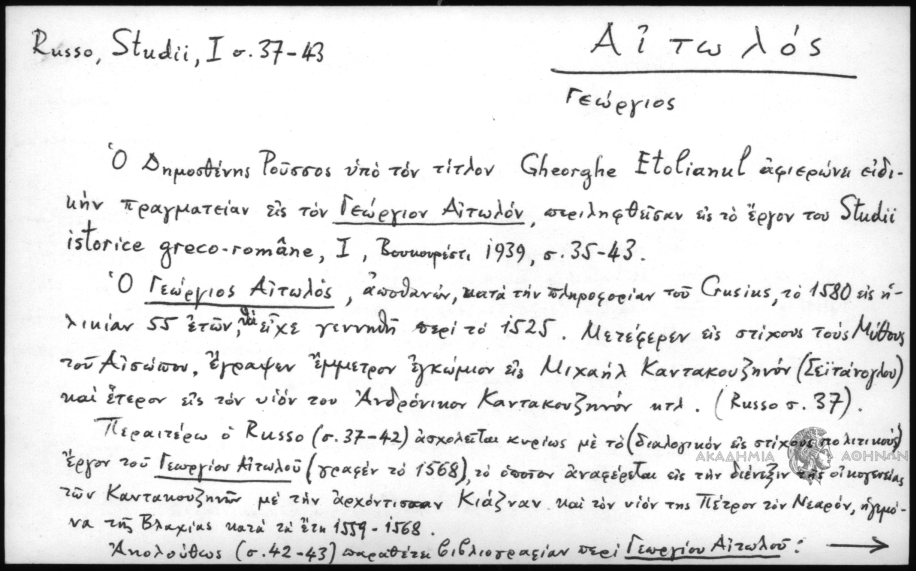 Russo, Studii, I σ. 37-43
Αἰτωλός
Γεώργιος
Ὁ Δημοσθένης Ροῦσσος ὑπὸ τὸν τίτλον Gheorghe Etolianul ἀφιερώνει εἰδι-
κὴν πραγματείαν εἰς τὸν Γεώργιον Αἰτωλόν, περιληφθεῖσαν εἰς τὸ ἔργον του Studii
istorice greco-române, I, Βουκουρέστι 1939, σ. 35-43.
Ὁ Γεώργιος Αἰτωλός, ἀποθανών, κατὰ τὴν πληροφορίαν τοῦ Crusius, τὸ 1580 εἰς ἡ-
λικίαν 55 ἐτῶν, θὰ εἶχε γεννηθῆ περὶ τὸ 1525. Μετέφερεν εἰς στίχους τοὺς Μύθους
τοῦ Αἰσώπου, ἔγραψεν ἔμμετρον ἐγκώμιον εἰς Μιχαὴλ Καντακουζηνόν (Σεϊτάνογλου)
καὶ ἕτερον εἰς τὸν υἱόν του Ἀνδρόνικον Καντακουζηνόν κτλ. (Russo σ. 37).
Περαιτέρω ὁ Russo (σ. 37-42) ἀσχολεῖται κυρίως μὲ τὸ (διαλογικόν εἰς στίχους πολιτικούς)
ἔργον τοῦ Γεωργίου Αἰτωλοῦ (γραφέν τὸ 1568), τὸ ὁποῖον ἀναφέρεται εἰς τὴν διένεξιν τῆς οἰκογενείας
τῶν Καντακουζηνῶν μὲ τὴν ἀρχόντισσαν Κιάζναν καὶ τὸν υἱόν της Πέτρον τὸν Νεαρόν, ἡγεμό-
να τῆς Βλαχίας κατὰ τὰ ἔτη 1559-1568.
Ἀκολούθως (σ. 42-43) παραθέτει βιβλιογραφίαν περὶ Γεωργίου Αἰτωλοῦ: →
ΑΚΑΔΗΜΙΑ ΑΘΗΝΩΝ